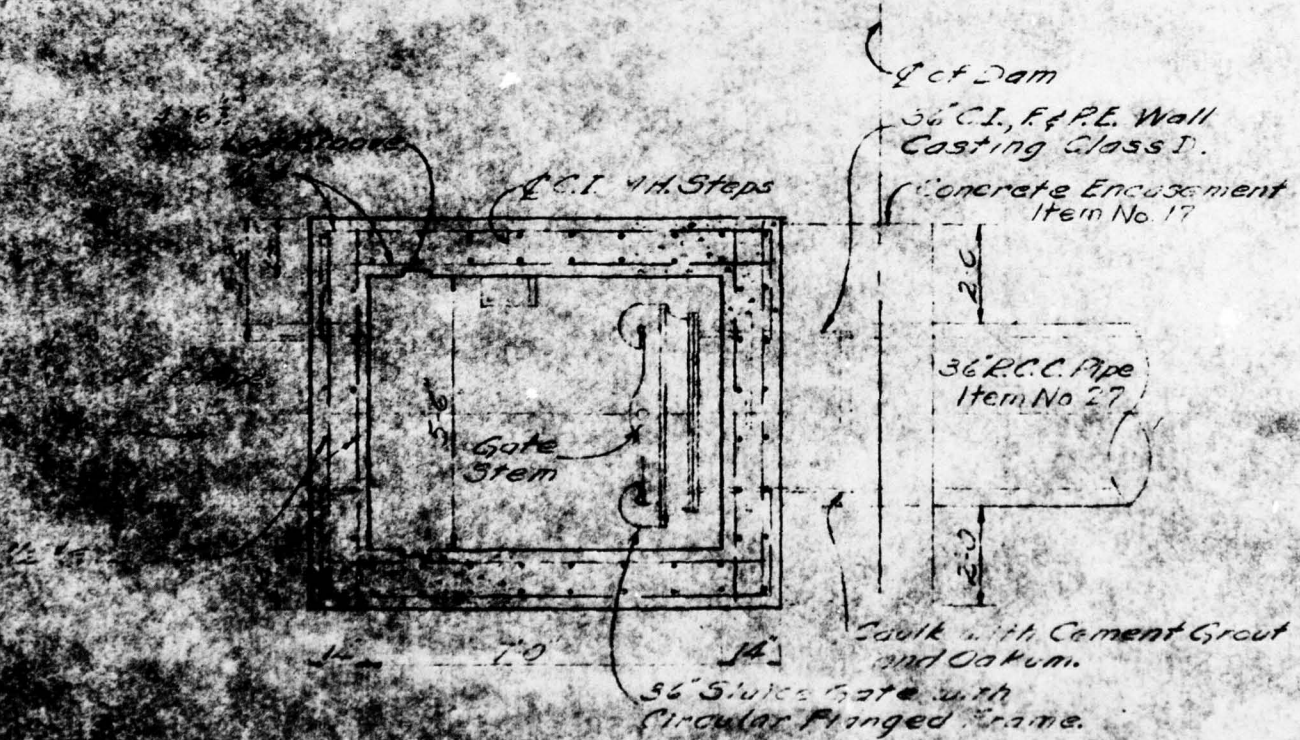 ℄ of Dam
36" C.I., F. & P.E. Wall
Casting Class D.
℄ C.I. M.H. Steps
Concrete Encasement
Item No. 17
2'-0"
36" R.C.C. Pipe
Item No 27
5'-6"
Gate
Stem
2'-0"
Caulk with Cement Grout
and Oakum.
7'-0"
14"
36" Sluice Gate with
Circular Flanged Frame.